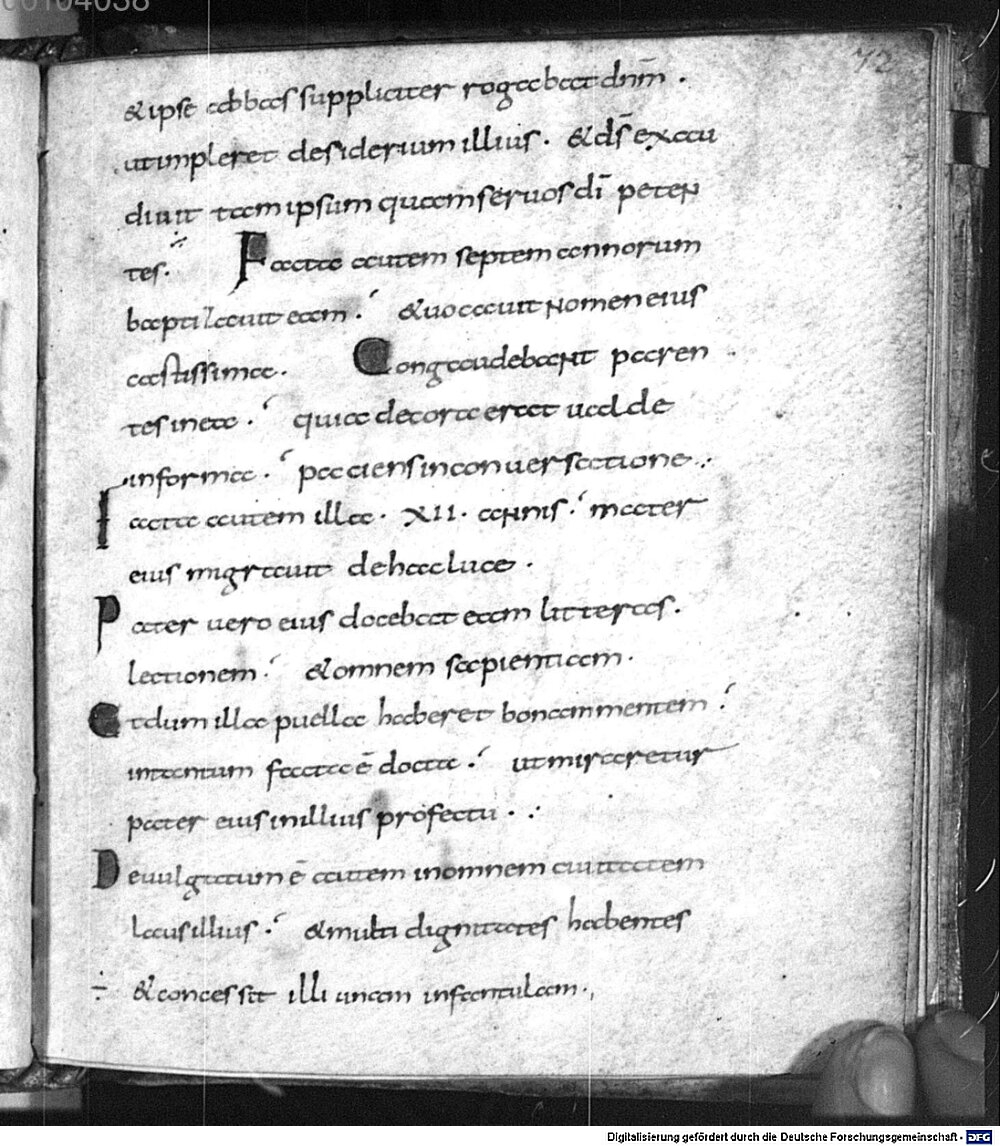 00104038
72
& ipse abbas suppliciter rogabat dnm̄ .
ut impleret desiderium illius . & ds̄ exau
diuit tam ipsum quam seruos dī peten
tes . Facta autem septem annorum
baptizauit eam . & uocauit nomen eius
castissima . Congaudebant paren
tes in ea . quia decora erat ualde
in forma . paciens in conuersatione .
Facta autem illa . XII . annis . mater
eius migrauit de hac luce .
Pater uero eius docebat eam litteras .
lectionem . & omnem sapientiam .
Et dum illa puella haberet bonam mentem .
in tantum facta ē docta . ut miraretur
pater eius in illius profectu .
Deuulgatum ē autem in omnem ciuitatem
laus illius . & multi dignitates habentes
÷ & concessit illi unam infantulam .
Digitalisierung gefördert durch die Deutsche Forschungsgemeinschaft - DFG